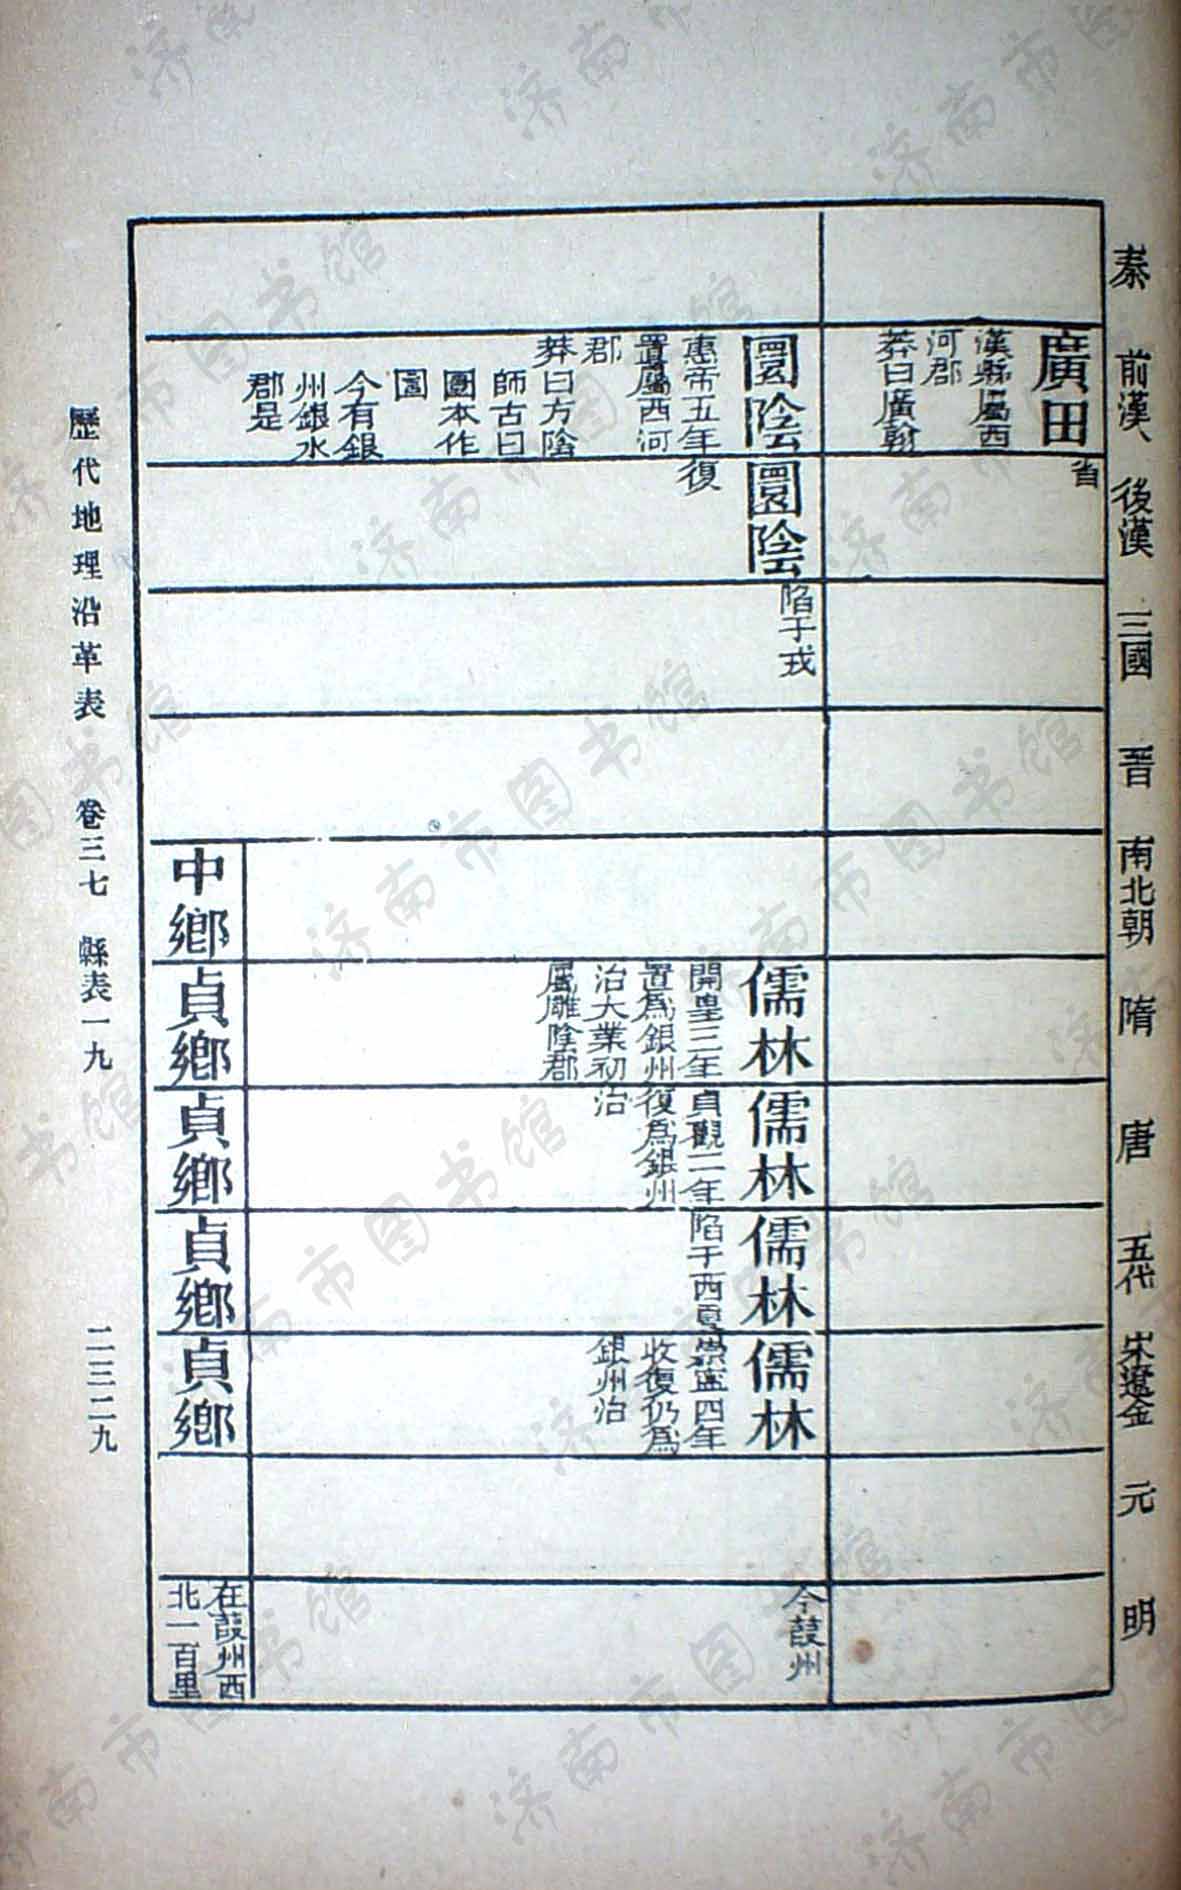 秦 前漢 後漢 三國 晋 南北朝 隋 唐 五代 宋遼金 元 明
廣田
漢縣屬西
河郡
莽曰廣翰
省
圜陰
惠帝五年
置屬西河
郡
莽曰方陰
師古曰
圁本作
圜
今有銀
州銀水
郡是
圜陰
復
陷于戎
儒林
開皇三年
置爲銀州
治大業初
屬雕陰郡
儒林
貞觀二年
復爲銀州
治
儒林
陷于西夏
儒林
崇寧四年
收復仍爲
銀州治
今葭州
中鄉
貞鄉
貞鄉
貞鄉
貞鄉
在葭州西
北一百里
歷代地理沿革表 卷三七 縣表一九 二三二九
济南市图书馆